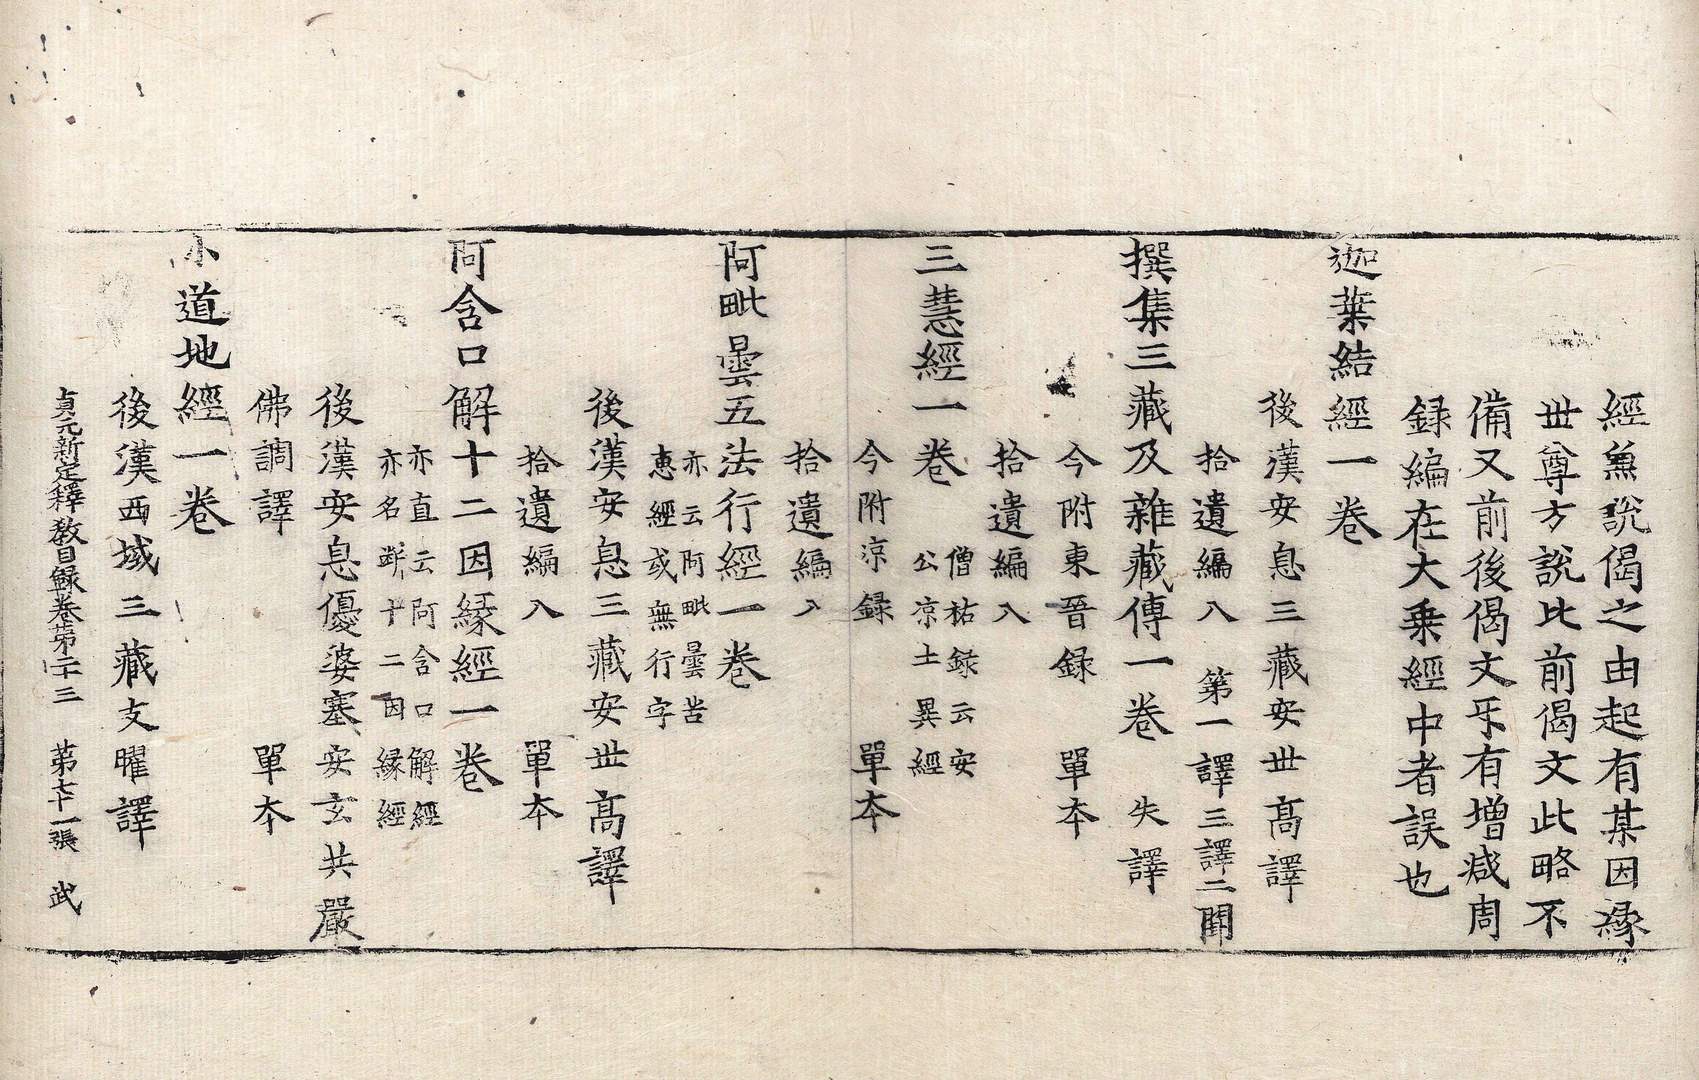 經兼說偈之由起有某因縁
世尊方說比前偈文此略不
備又前後偈文牙有增减周
録編在大乗經中者誤也
迦葉結經一卷
後漢安息三藏安世髙譯
拾遺編入 第一譯三譯二闕
撰集三藏及雜藏傳一卷 失譯
今附東晉録 單本
拾遺編入
三慧經一卷 僧祐録云安
公凉士異經
今附涼録 單本
拾遺編入
阿毗曇五法行經一卷
亦云阿毗曇苦
惠經或無行字
後漢安息三藏安世髙譯
拾遺編入 單本
阿含口解十二因縁經一卷
亦直云阿含口解經
亦名断十二因縁經
後漢安息優婆塞安玄共嚴
佛調譯 單本
小道地經一卷
後漢西域三藏支曜譯
貞元新定釋教目録卷第二十三 第七十一張 武